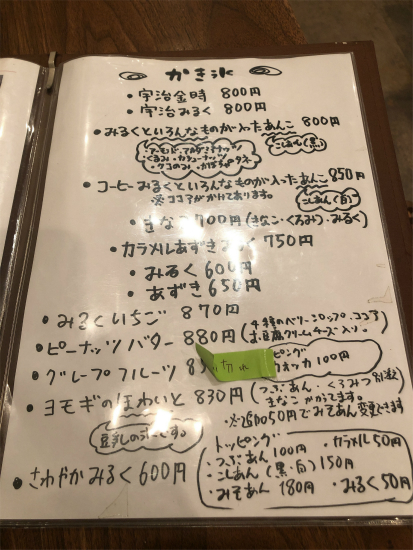 かき氷
・宇治金時 800円
・宇治みるく 800円
・みるくといろんなものが入ったあんこ 800円
こしあん(黒)
アーモンド・マカダミアナッツ
・くるみ・カシューナッツ
・クコのみ・かぼちゃのタネ
・コーヒーみるくといろんなものが入ったあんこ 850円
※ココアがかけてあります。
こしあん(白)
・きなこ 700円(きなこ・くろみつ・みるく)
・カラメルあずきみるく 750円
・みるく 600円
・あずき 650円
・みるくいちご 870円
・ピーナッツバター 880円
4種のベリーシロップ、ココア
お豆腐クリームチーズ入り。
・グレープフルーツ 8
切れ
ピング
ォッカ 100円
・ヨモギのほわいと 830円
(つぶあん・くろみつ別添
きなこがかかってます。
・※追加50円でみそあん変更できます
豆乳の氷です。
・さわやかみるく 600円
トッピング
・カラメル 50円
・つぶあん 100円
・こしあん(黒・白) 150円
・みそあん 180円
・みるく 50円